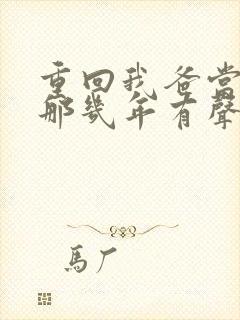 重回我爸當
那幾年有聲
馬厂